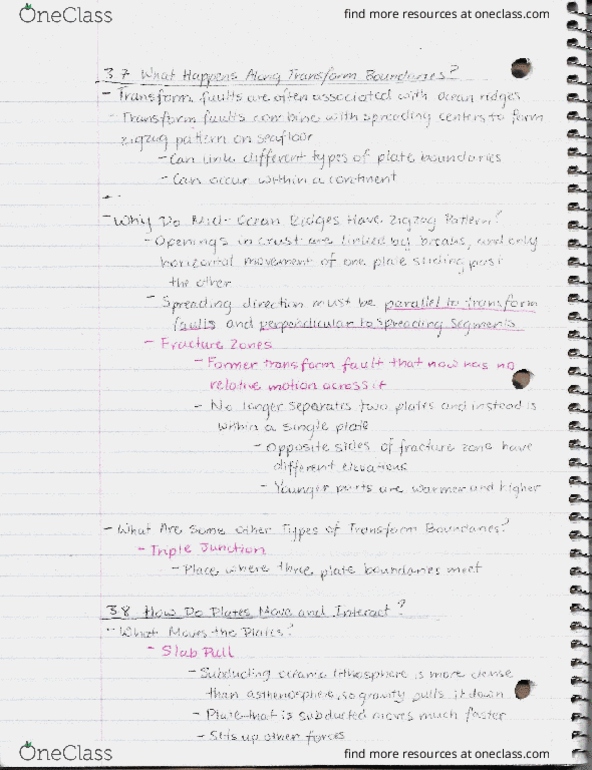 OneClass
find more resources at oneclass.com
3.7 What Happens Along Transform Boundaries?
- Transform faults are often associated with ocean ridges
- Transform faults combine with spreading centers to form
zigzag pattern on seafloor
- Can link different types of plate boundaries
- Can occur within a continent
- Why Do Mid-Ocean Ridges Have Zigzag Pattern?
- Openings in crust are linked by breaks, and only
horizontal movement of one plate sliding past
the other
- Spreading direction must be parallel to transform
faults and perpendicular to spreading segments
- Fracture Zones
- Former transform fault that now has no
relative motion across it
- No longer separates two plates and instead is
within a single plate
- Opposite sides of fracture zone have
different elevations
- Younger parts are warmer and higher
- What Are Some Other Types of Transform Boundaries?
- Triple Junction
- Place where three plate boundaries meet
3.8 How Do Plates Move and Interact?
- What Moves the Plates?
- Slab Pull
- Subducting oceanic lithosphere is more dense
than asthenosphere, so gravity pulls it down
- Plate that is subducted moves much faster
- Sets up other forces
OneClass
find more resources at oneclass.com